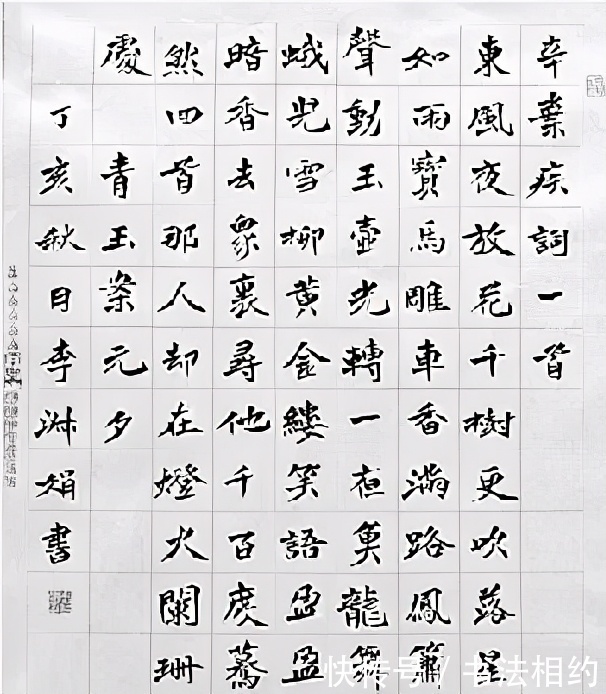 辛棄疾詞一首
東風夜放花千樹更吹落星
如雨寶馬雕車香滿路鳳簫
聲動玉壺光轉一夜魚龍舞
蛾兒雪柳黃金縷笑語盈盈
暗香去衆裏尋他千百度驀
然回首那人却在燈火闌珊
處 青玉案元夕
丁亥秋日李淑娟書
快传号/书法相约